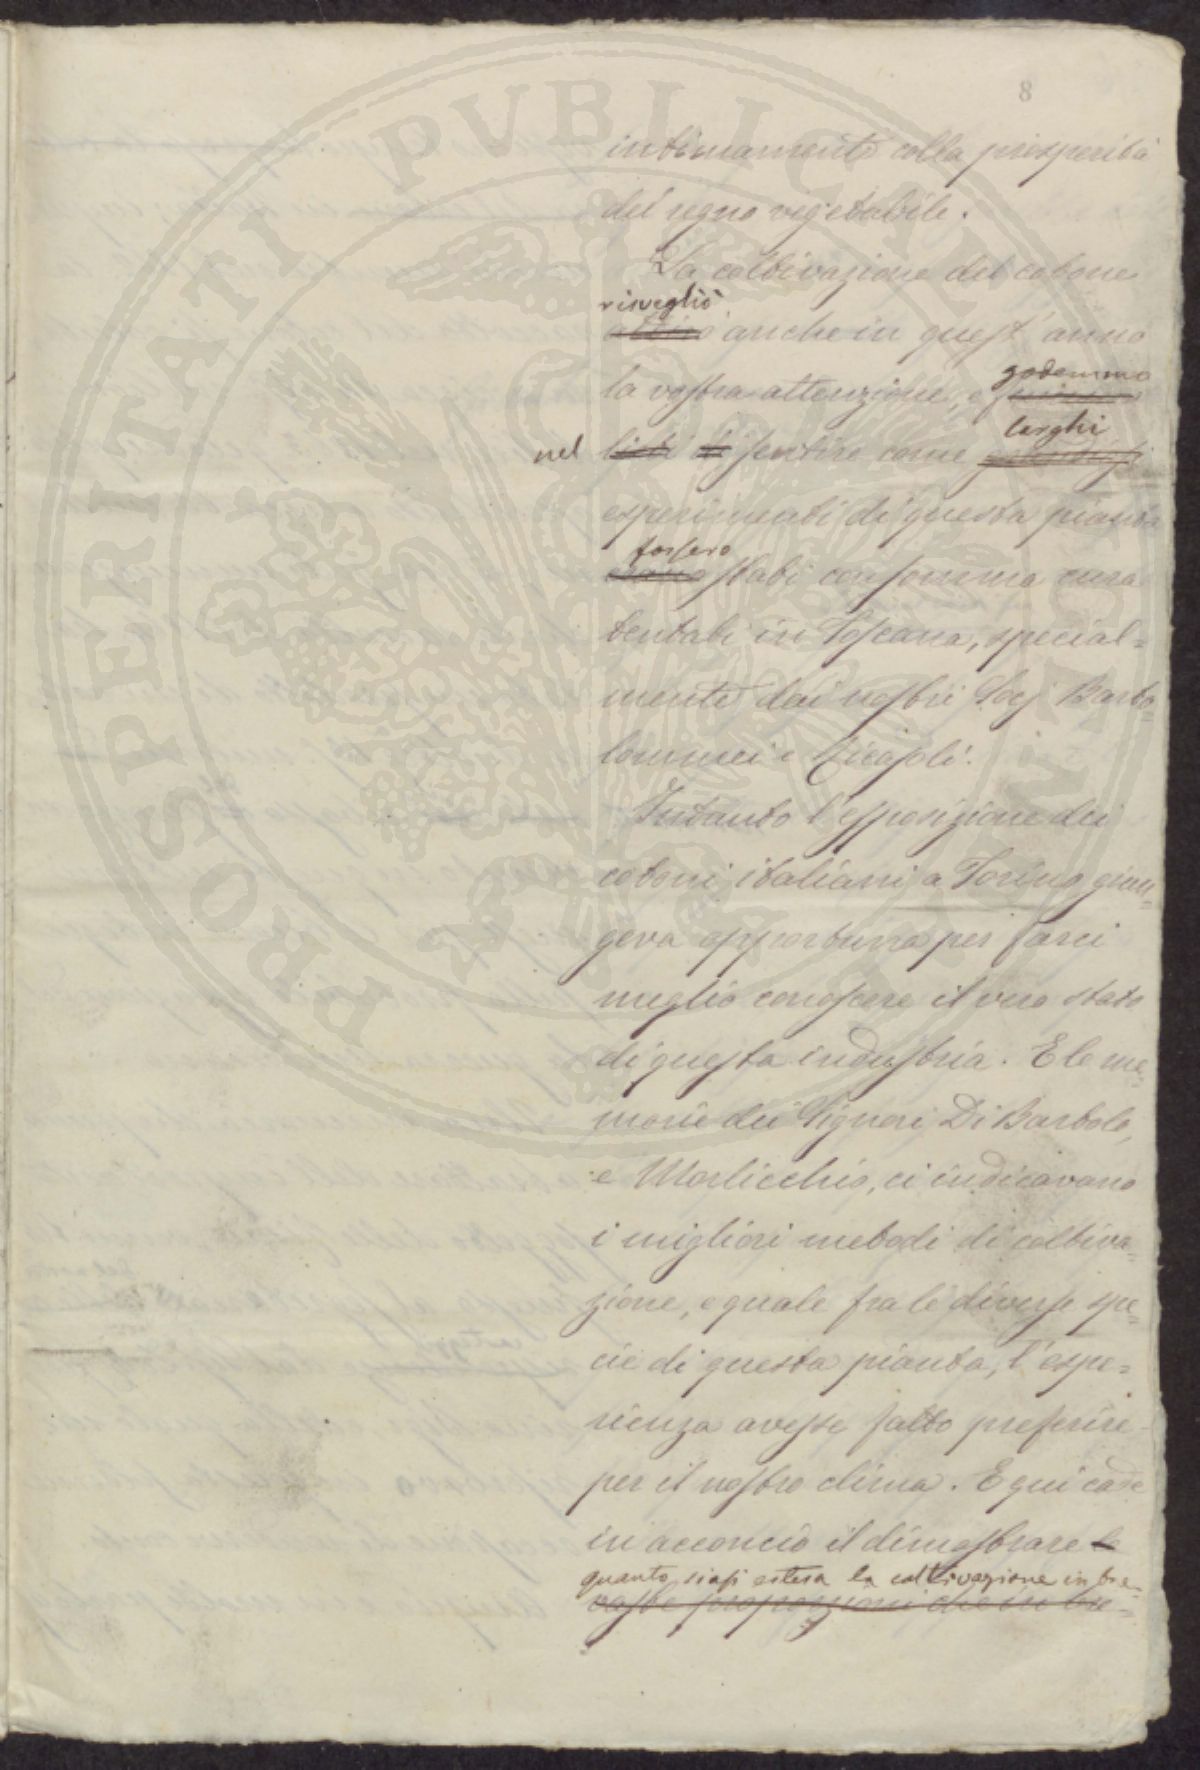 8
intimamente colla prosperità
del regno vegetabile.
La coltivazione del cotone
risvegliò
attirò anche in quest'anno
la vostra attenzione, e
godemmo
nel lieti di sentire come
larghi
esperimenti di questa pianta
fossero
erano stati con somma cura
tentati in Toscana, special=
mente dai nostri Socj Barto=
lommei e Ricasoli.
Intanto l'esposizione dei
cotoni italiani a Torino giun=
geva opportuna per farci
meglio conoscere il vero stato
di questa industria. E le me=
morie dei Signori Di Bartolo,
e Morlicchio, ci indicavano
i migliori metodi di coltiva=
zione, e quale fra le diverse spe=
cie di questa pianta, l'espe=
rienza avesse fatto preferire
per il nostro clima. E qui cade
in acconcio il dimostrare le
quanto siasi estesa la coltivazione in bre=
vaste proporzioni che in bre=
PROSPERITATI PVBLICAE AVGENDAE